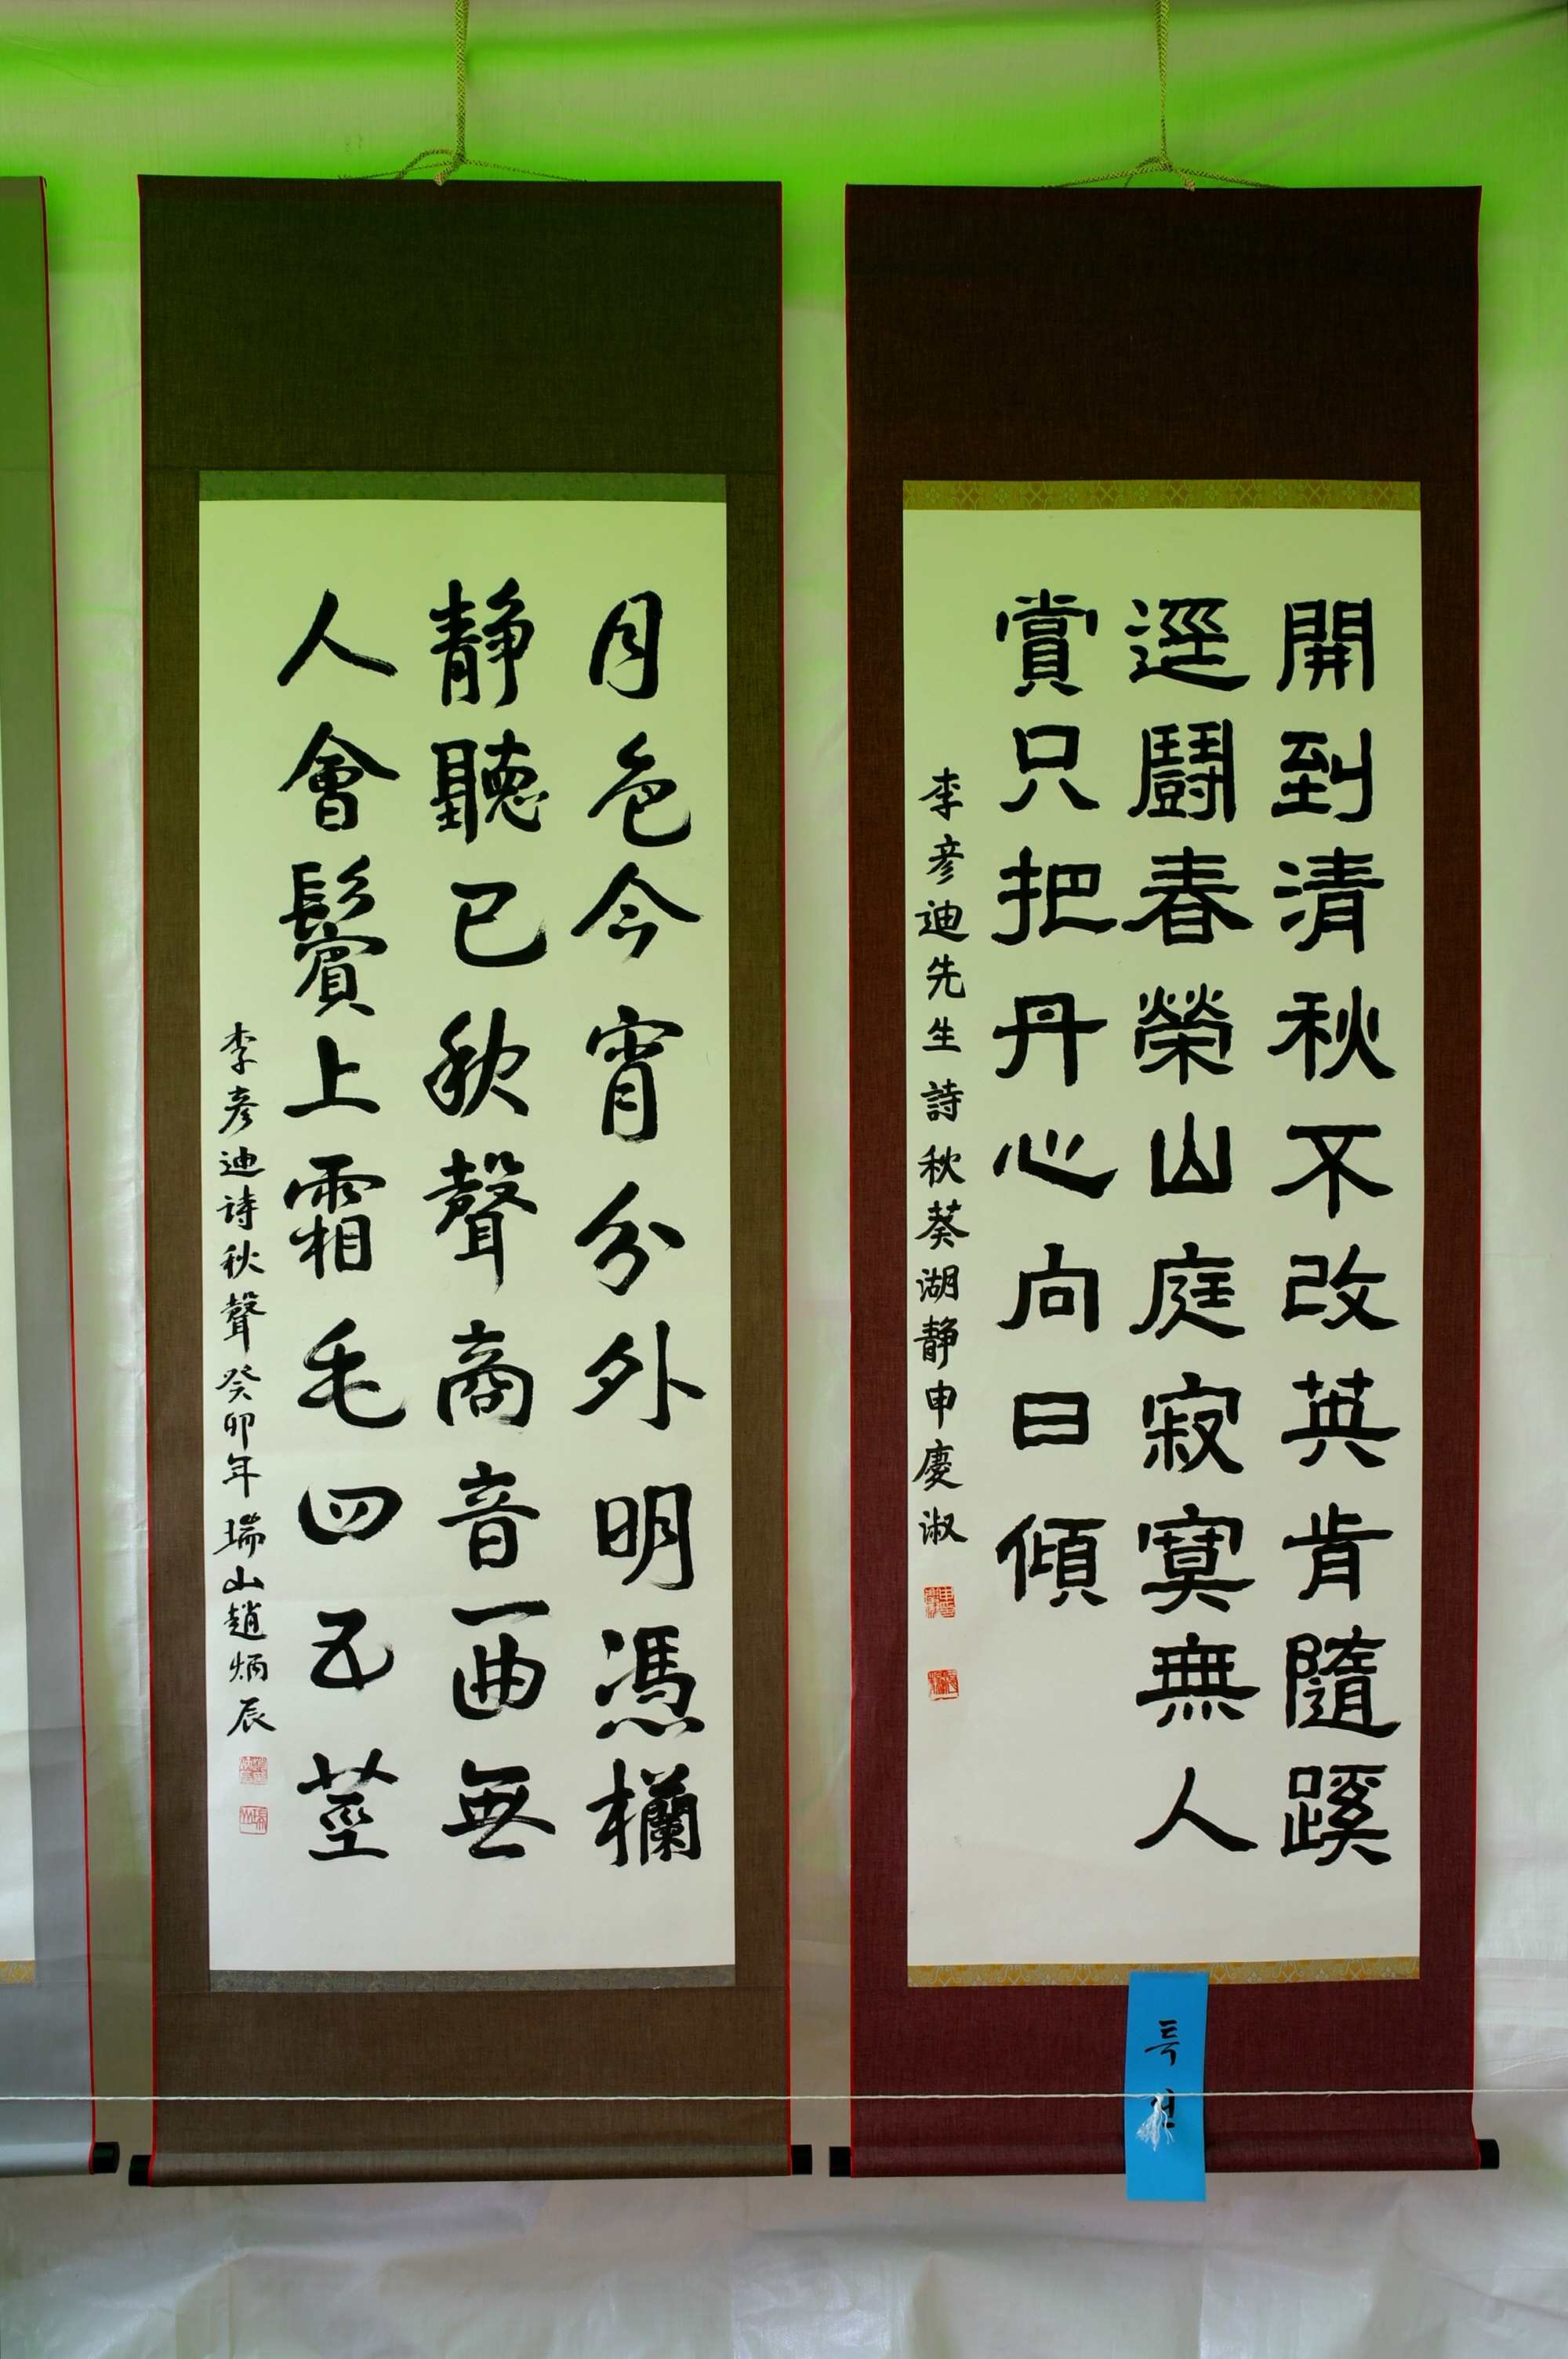 開到清秋不改英肯隨蹊
逕鬪春榮山庭寂寞無人
賞只把丹心向日傾
李彦迪先生詩秋葵湖靜申慶淑
특선
月色今宵分外明憑欄
靜聽已秋聲商音一曲無
人會鬢上霜毛四五莖
李彦迪詩秋聲癸卯年瑞山趙炳辰